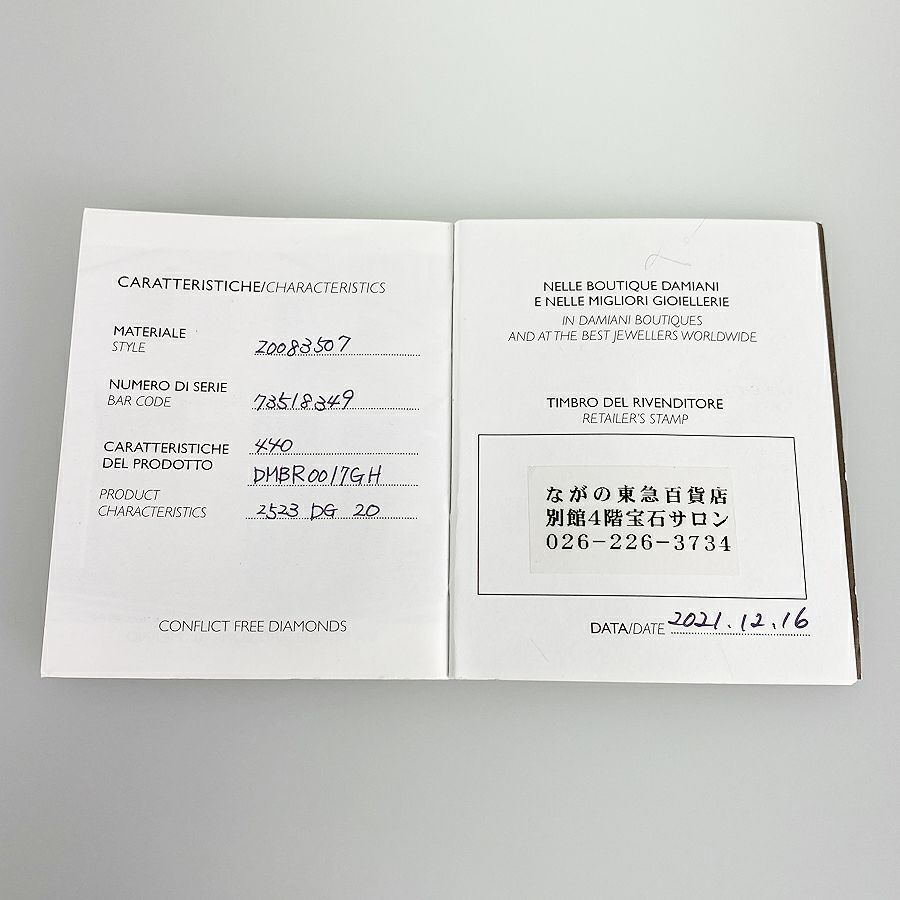 CARATTERISTICHE/CHARACTERISTICS
MATERIALE
STYLE
20083507
NUMERO DI SERIE
BAR CODE
73518349
CARATTERISTICHE
DEL PRODOTTO
PRODUCT
CHARACTERISTICS
440
DMBR0017GH
2523 DG 20
CONFLICT FREE DIAMONDS
NELLE BOUTIQUE DAMIANI
E NELLE MIGLIORI GIOIELLERIE
IN DAMIANI BOUTIQUES
AND AT THE BEST JEWELLERS WORLDWIDE
TIMBRO DEL RIVENDITORE
RETAILER'S STAMP
ながの東急百貨店
別館4階宝石サロン
026-226-3734
DATA/DATE 2021.12.16